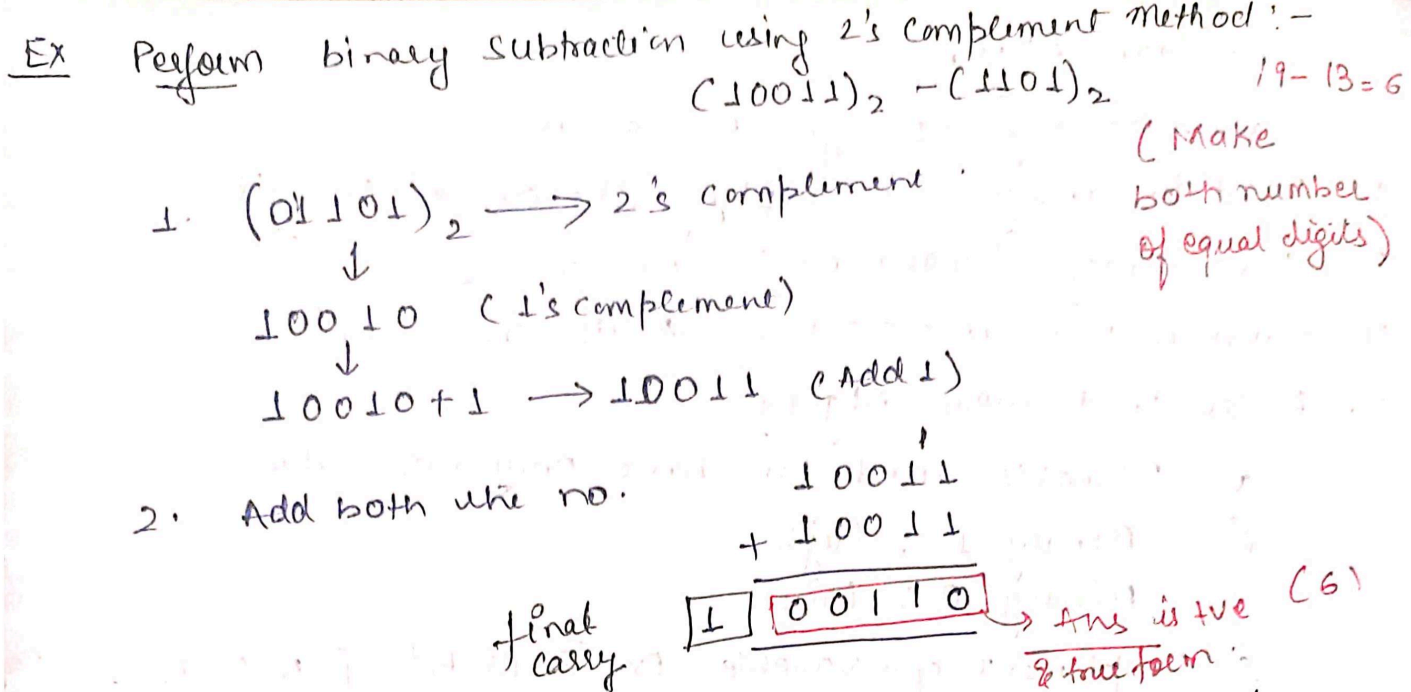 Ex Perform binary subtraction using 2's complement method :-
(10011)₂ - (1101)₂ 19-13=6
(Make
both number
of equal digits)
1. (01101)₂ → 2's complement
↓
10010 (1's complement)
↓
10010+1 → 10011 (Add 1)
1
2. Add both the no. 10011
+ 10011
final carry 1 00110 → Ans is +ve (6)
& true form.